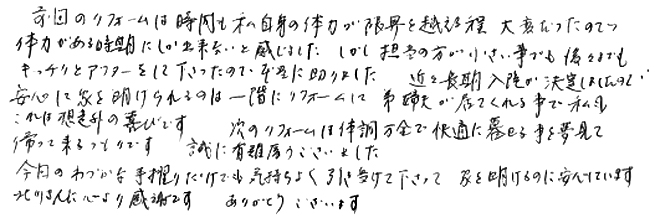 前回のリフォームは時間も私自身の体力が限界を越える程 大変だったので
体力がある時期にしか出来ないと感じました しかし担当の方が小さい事でも後々までも
キッチリとアフターをして下さったので本当に助かりました 近々長期入院が決定しましたので
安心して家を明けられるのは一階にリフォームして 弟嫁が居てくれる事で私も
これは想定外の喜びです 次のリフォームは体調万全で快適に暮せる事を夢見て
帰って来るつもりです 誠に有難うございました
今回のわづかな手摺りだけでも気持ちよく引き受けて下さって 家を明けるのに安心しています
心より感謝です ありがとうございます